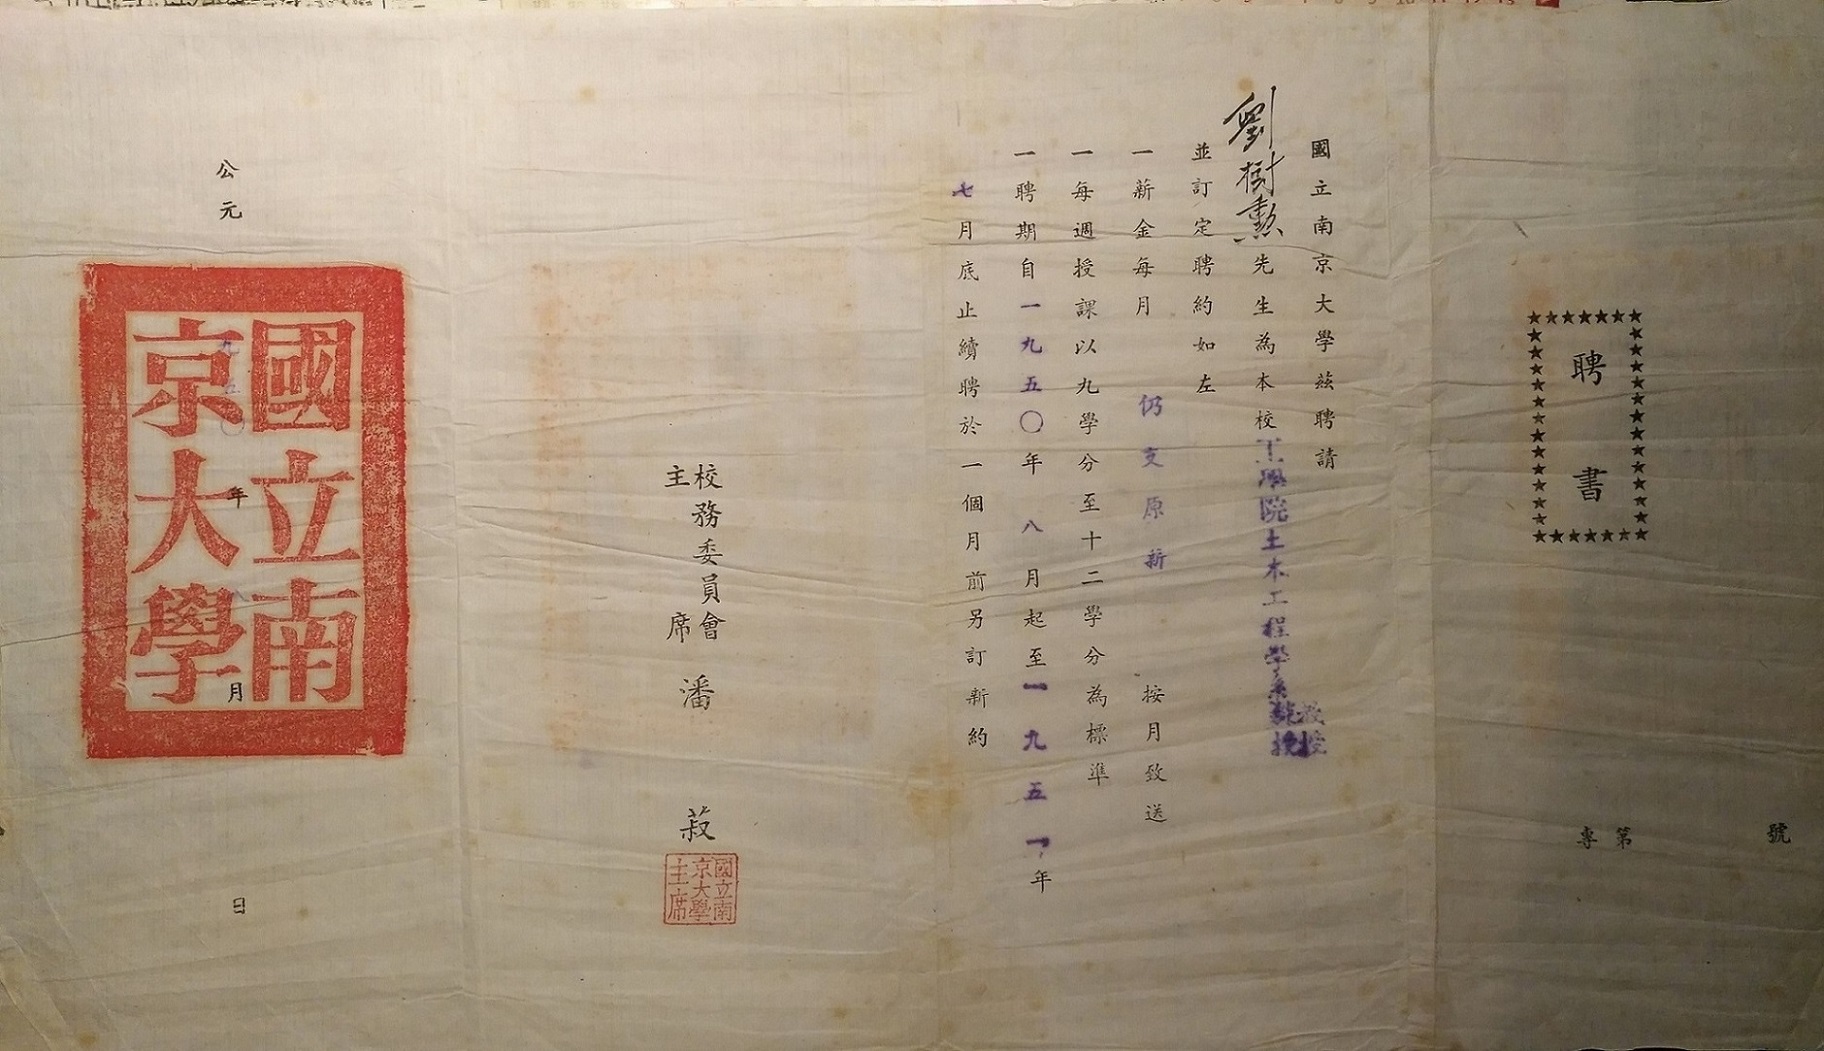 聘書
專第 號
國立南京大學茲聘請
劉樹勲先生為本校工學院土木工程學系教授兼授
並訂定聘約如左
一薪金每月仍支原薪按月致送
一每週授課以九學分至十二學分為標準
一聘期自一九五〇年八月起至一九五一年
七月底止續聘於一個月前另訂新約
校務委員會
主席
潘菽
國立南京大學主席
公元 九五〇年八月 日
國立南京大學